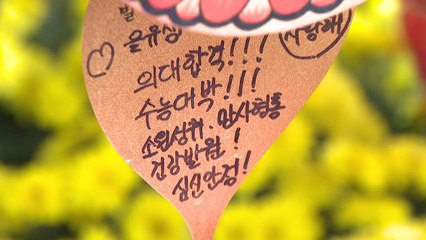 을유생
사랑해
의대합격!!!
수능대박!!!
소원성취. 만사형통
건강발원!
심신안정!